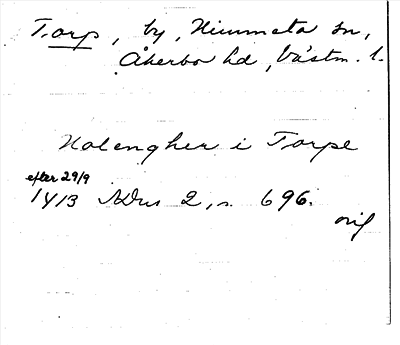 Torp, by, Himmeta sn,
Åkerbo hd, Västm. l.
Holengher i Torpe
efter 29/9
1413 SDns 2, s. 696.
orig